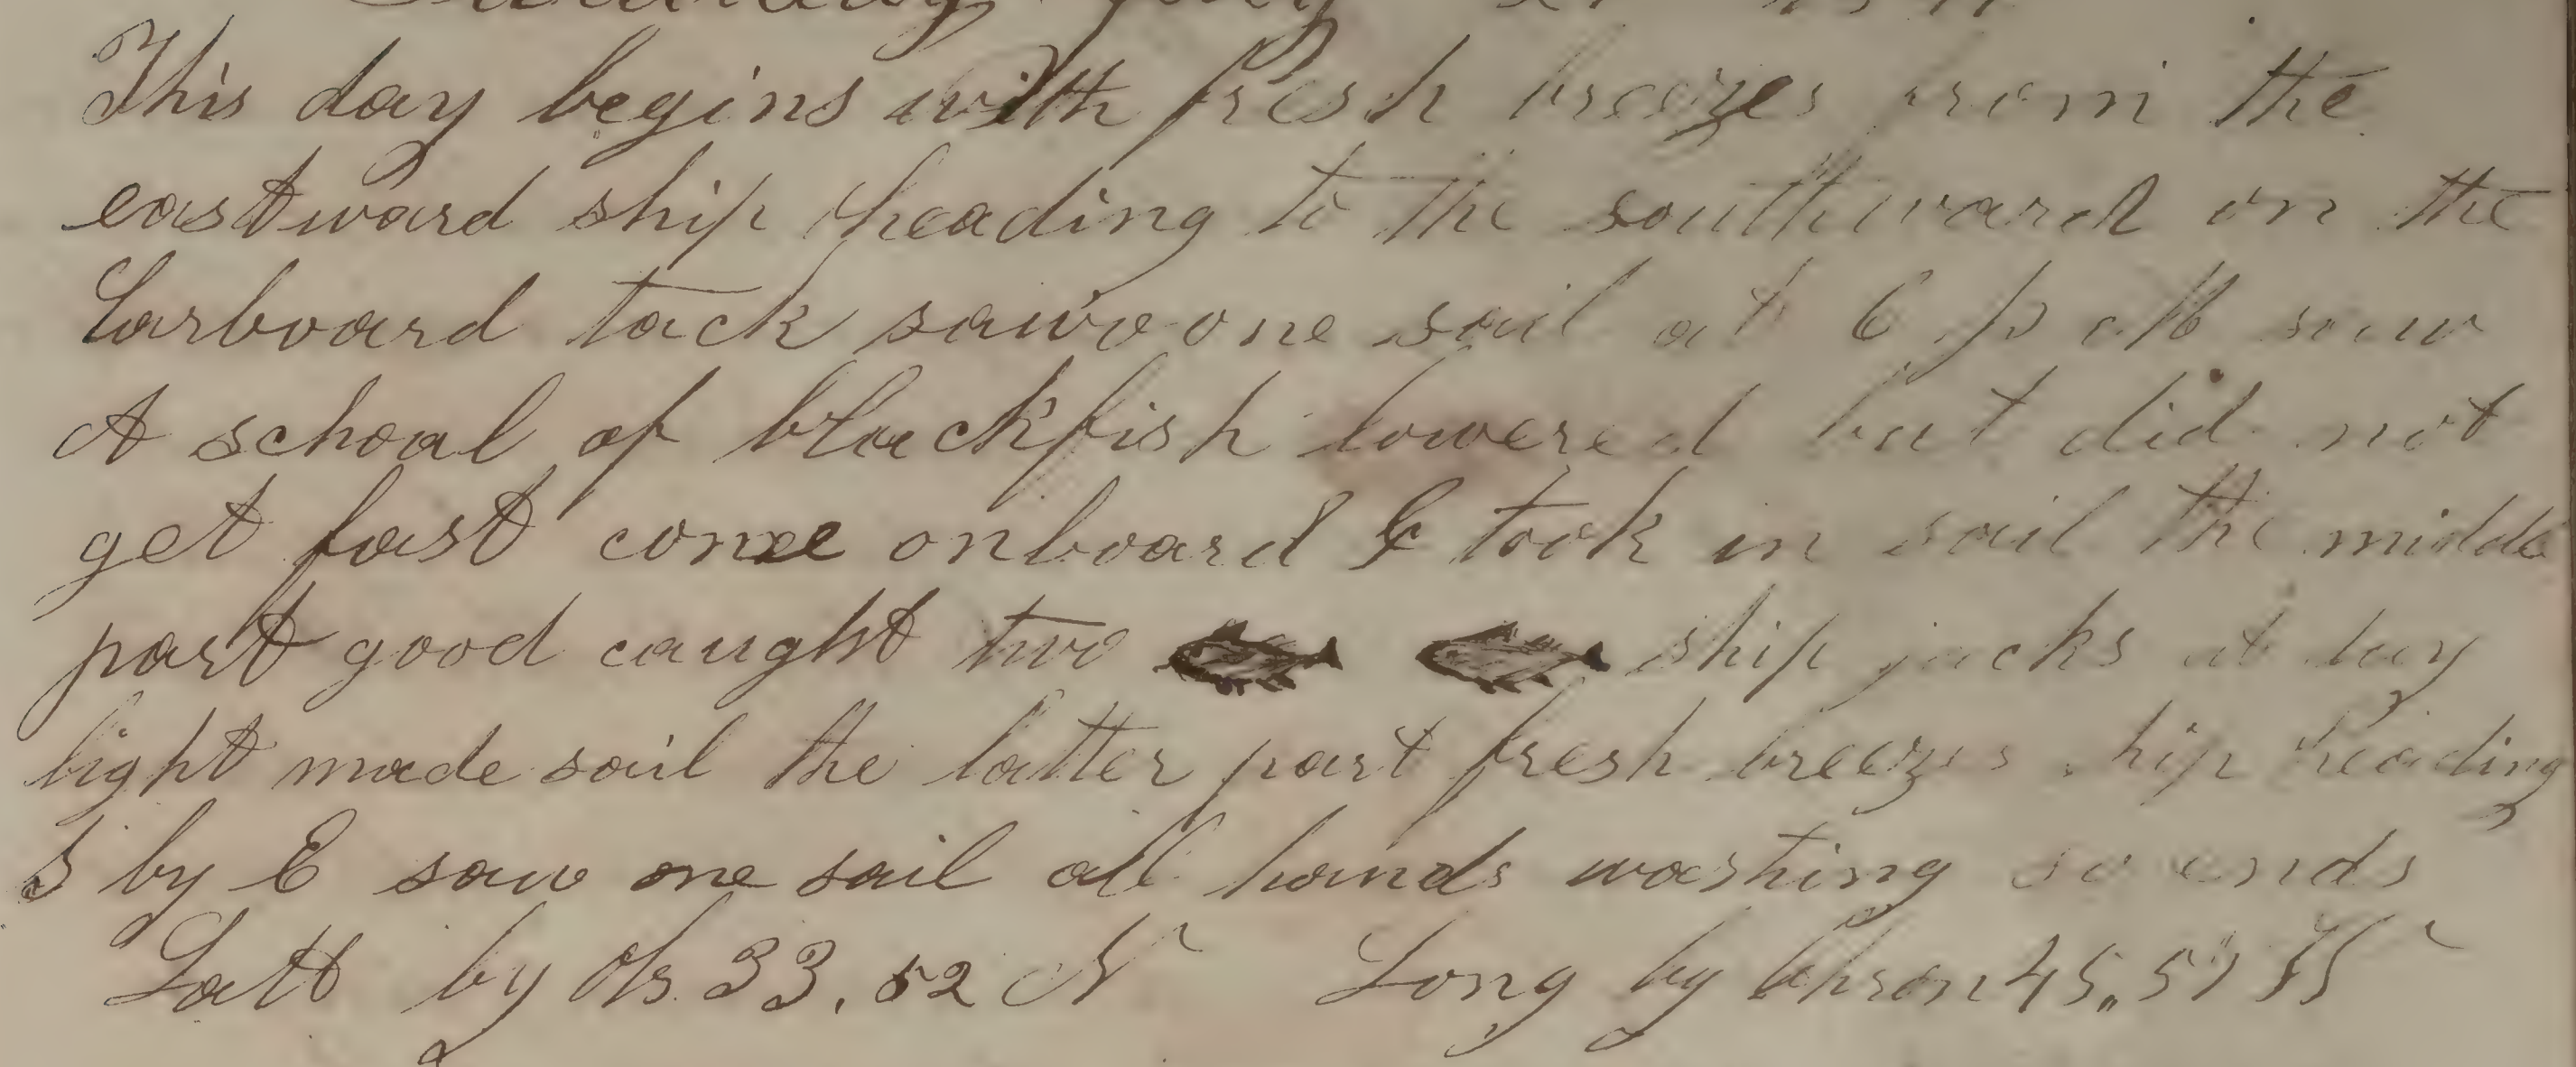 This day begins with fresh breezes from the
eastward ship heading to the southward on the
Larboard tack saw one sail at 6 P M saw
A school of blackfish lowered but did not
get fast come onboard & took in sail the middle
part good caught two ship jacks at day
light made sail the latter part fresh breezes ship heading
S by E saw one sail all hands washing so ends
Latt by Obs 33,52 N Long by Chron 45,,51 W